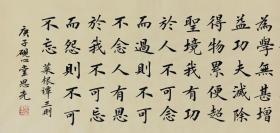 為學無甚增
益功夫減除
得物累便超
聖境我有功
於人不可念
而過則不可
不念人有恩
於我不可忘
而怨則不可
不忘 菜根譚三則
庚子硯心堂思